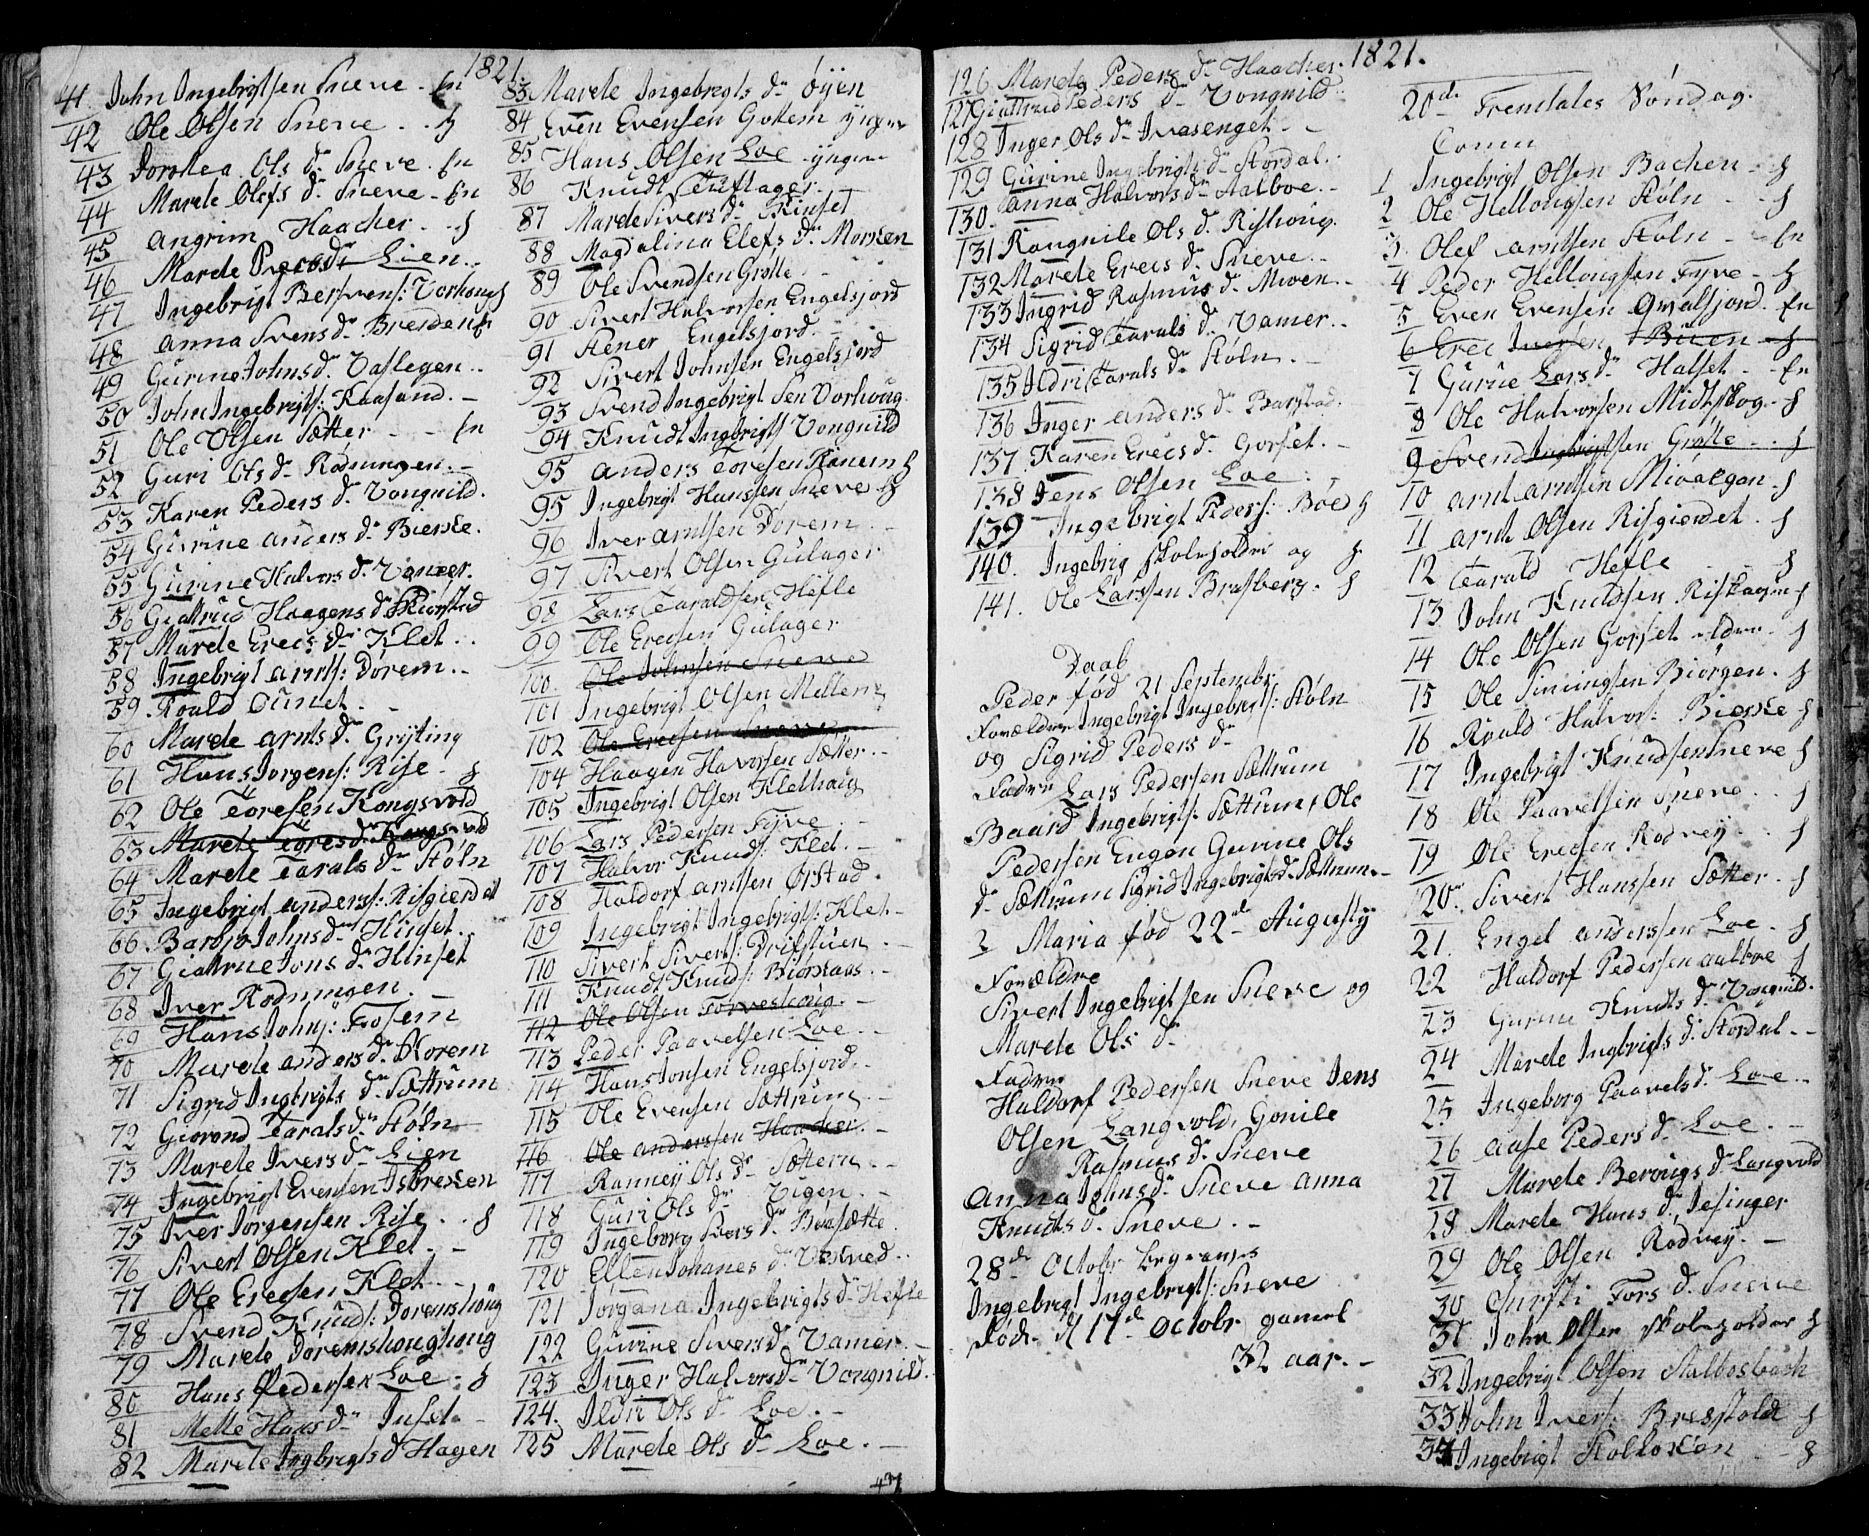 1821
41. John Ingebrigtsen Sneve - En
42 Ole Olsen Sneve . . §
43 Dorothea Ols dr Sneve . En
44 Marete Olefs dr Sneve - En
45 Angrim Haacher . . §
46 Marete Ivers dr Lien ..
47 Ingebrigt Bersvens: Vorhoug §
48 Anna Svens dr Bresden En
49 Gurine Johns dr Vaslegen ..
50 John Ingebrigts: Kaasand . -
51 Ole Olsen Sætter - - En
52 Guri Ols dr Rodningen . -
53 Karen Peders dr Vongnild .
54 Gurine Anders dr Bierke .
55 Gurine Halvors dr Vamer .
56 Giøttrud Haagens dr Riørstad
57 Marete Erecs dr Klet . .
58 Ingebrigt Arnts: Dorem . -
59 Roald Ounet . -
60 Marete Arnts dr Grijting
61 Hans Jorgens: Rise . §
62 Ole Toresen Kongsvold
63 Marete Tores dr Kongsvold
64 Marete Tarals dr Støln
65 Ingebrigt Anders: Risgierdet
66 Barbro Johns dr Hinset .
67 Giertrue Jons dr Hinset
68 Iver Rodningen . -
69 Hans Johns: Fosem
70 Marete Anders dr Horem
71 Sigrid Ingbrigts dr Sættrum
72 Gurond Tarals dr Støln
73 Marete Ivers dr Lien
74 Ingebrigt Evensen Isbrecken
75 Iver Jorgensen Rise . . §
76 Sivert Olsen Klet . -
77 Ole Erecsen Klet . -
78 Svend Knuds: Doremshoug
79 Marete Doremshoughoug
80 Hans Pedersen Loe . §
81 Mette Hans dr Inset -
82 Marete Ingbrigts d Hagen
83 Marete Ingebrigts dr Øyen
84 Even Evensen Gottem yngre
85 Hans Olsen Loe yngre
86 Knudt Gulager .
87 Marete Sivers dr Rinset
88 Magdalina Elefs dr Morken
89 Ole Svendsen Grøtte -
90 Sivert Halvorsen Engelsjord
91 Stener Engelsjord . -
92 Sivert Johnsen Engelsjord
93 Svend Ingebrigtsen Vorhoug
94 Knudt Ingbrigts Vongnild
95 Anders Toresen Ranem §
95 Ingebrigt Hanssen Sneve §
96 Iver Arntsen Dorem . -
97 Sivert Olsen Gulager
98 Lars Taraldsen Hefle
99 Ole Erecsen Gulager
100 Ole Johnsen Sneve
101 Ingebrigt Olsen Mellem
102 Ole Erecsen Sneve
104 Haagen Halvorsen Sætter . -
105 Ingebrigt Olsen Klethoug
106 Lars Pedersen Fyve
107 Halvor Knuds: Klet . -
108 Haldorf Arntsen Ørstad .
109 Ingebrigt Ingebrigts: Klet -
110 Sivert Sivers: Drifstuen . -
111 Knudt Knuds: Biørkaas . -
112 Ole Olsen Torveshoug . -
113 Peder Paavelsen Loe . -
114 Hans Jonsen Engelsjord . -
115 Ole Evensen Sættrum . -
116 Ole Anderssen Haacker . -
117 Ranney Ols dr Sættern . -
118 Guri Ols dr Vigen . -
119 Ingeborg Ivers dr Bøasætte .
120 Ellen Johanes dr Vekved . .
121 Jorgana Ingebrigts dr Hefle
122 Gurine Sivers dr Vamer . -
123 Inger Halvors dr Vongnild .
124. Ildri Ols dr Loe . -
125 Marete Ols dr Loe . -
47
1821.
126 Marete Peders dr Haacher .
127 Giøttrud Peders dr Vongnild
128 Inger Ols dr Ivasenget . -
129 Gurine Ingebrigts dr Stordal . .
130. Anna Halvors dr Aalboe . -
131 Rangnile Ols d. Rishoug .
132 Marete Erecs dr Sneve . .
133 Ingrid Rasmus dr Moen . .
134 Sigrid Tarals dr Vamer . .
135 Ildri Tarals dr Støln . -
136 Inger Anders dr Barstad .
137. Karen Erecs dr Gorset . -
138 Jens Olsen Loe . .
139 Ingebrigt Peders: Bøe §
140. Ingebrig skoleholder og §
141. Ole Larssen Brusberg . §
Daab
Peder fød 21 Septembr
Forældre Ingebrigt Ingebrigts: Støln
og Sigrid Peders dr
Fadre Lars Pedersen Sættrum
Baard Ingebrigts: Sættrum, Ole
Pedersen Engen Gurine Ols
dr Sættrum Sigrid Ingebrigts dr Sættrum . -
2 Maria fød 22de Augusty
Forældre
Sivert Ingebrigtsen Sneve og
Marete Ols dr
Fadre
Haldorf Pedersen Sneve Jens
Olsen Langvold, Gonile
Rasmus dr Sneve
Anna Johns dr Sneve Anna
Knudts dr Sneve . -
28de Octobr begraves
Ingebrigt Ingebrigts: Sneve
Døde d 17de Octobr gamel
32 aar . -
20de Tremtales Søndag .
Comm
1 Ingebrigt Olsen Bachen - §
2 Ole Hellongsen Støln - - §
3. Olef Arntsen Støln - - En
4 Peder Hellongsen Fyve - §
5 Even Evensen Qvalsjord . En
6 Erec Iversen Buen §
7 Gurue Lars dr Halset - En
8 Ole Halvorsen Midtskog . §
9 Svend Ingebrigtsen Grøtte . . §
10 Arnt Arntsen Mioaegan . §
11 Arnt Olsen Risgierdet . §
12 Tarald Hefle . . §
13 John Knudsen Riskagen §
14 Ole Olsen Gorset eldre . §
15 Ole Simingsen Biørgen . §
16 Roald Halvors: Bierke §
17 Ingebrigt Knudsen Sneve §
18 Ole Paavelsen Sneve . . §
19 Ole Erecsen Rodvey . . §
20. Sivert Hanssen Sætter . §
21. Engel Anderssen Loe . §
22 Haldorf Pedersen Aalboe §
23 Gurine Knudts dr Vongnild .
24 Marete Ingbrigts dr Stordal . -
25 Ingeborg Paavels dr Loe . .
26 Aase Peders dr Loe . -
27 Marete Berougs dr Langvold
28 Marete Hans dr Jesinger
29 Ole Olsen Rodvey . -
30 Chirsti Fors dr Sneve
31 John Olsen skoleholder §
32 Ingebrigt Olsen Stalbosbach
33 John Ivers: Bresstolet §
34 Ingebrigt Stolbocken - §